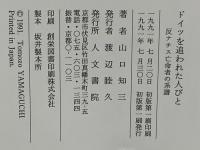 ドイツを追われた人びと
反ナチス亡命者の系譜
一九九一年 七月二〇日 初版第一刷印刷
一九九一年 七月三〇日 初版第一刷発行
著者 山口知三
発行者 渡辺睦久
発行所 人文書院
京都市伏見区竹田真幡木町三九-五
電話・〇七五・六〇三・一三四四
振替・京都〇-一一〇三
印刷 創栄図書印刷株式会社
製本 坂井製本所
© 1991, Tomozo YAMAGUCHI
Printed in Japan.